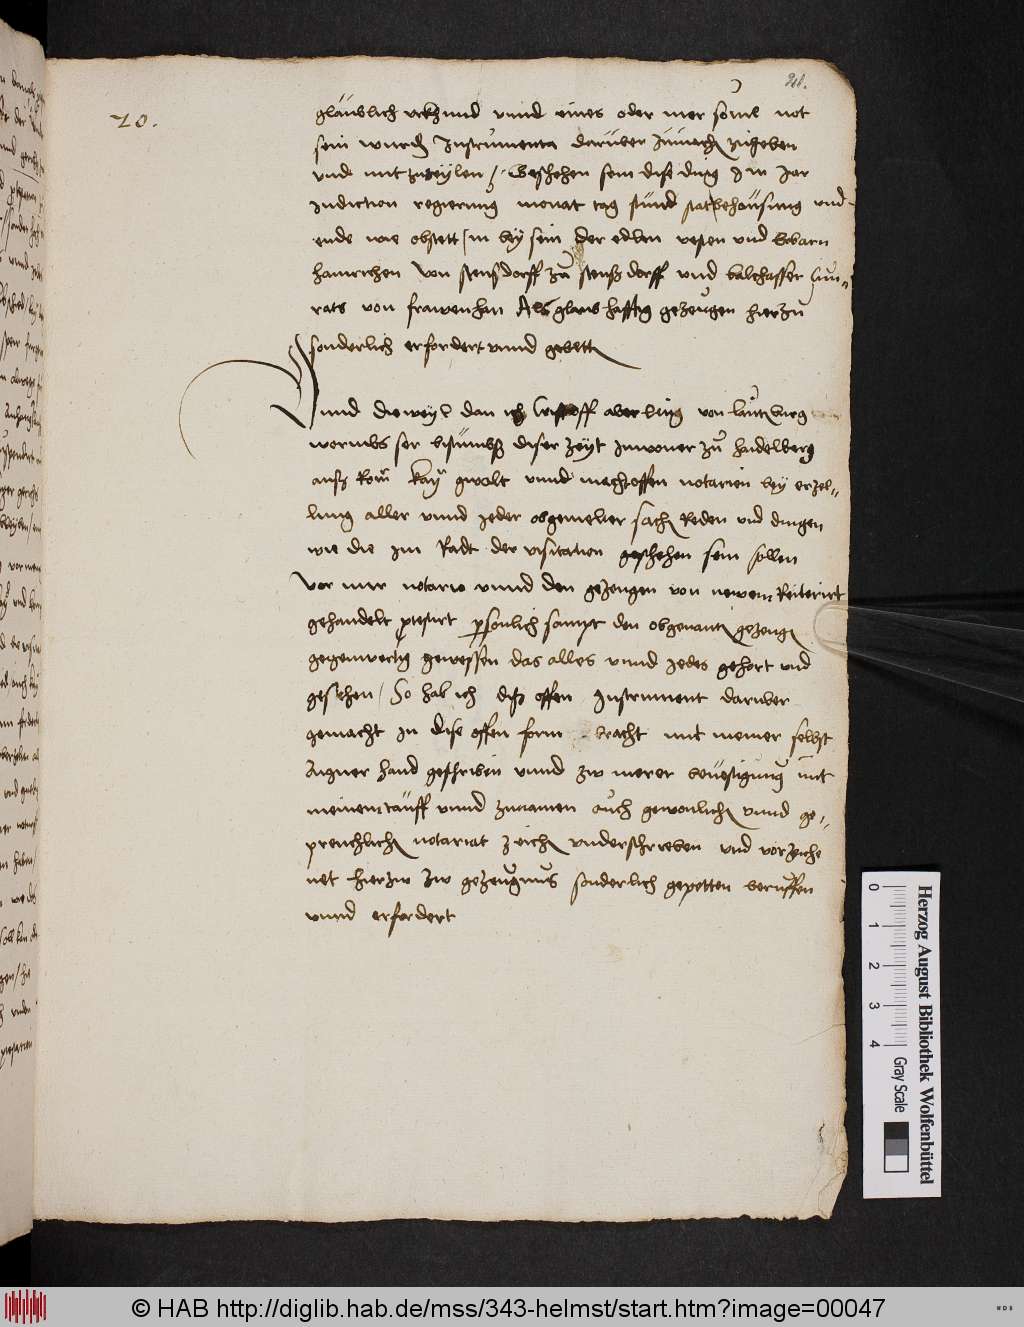 20.
gläublich vrkhund vnnd eines oder mer souil not
sein wurdn Instrumenta darüber zümachn zügeben
vnd mitzuteylen /. Geschehen sein dise ding Im Jar
Indiction regierung monat tag stund stat behaüsung vnd
ende wie obstett / in bey sein der edlen vesten vnd Erbarn
hainrichen von zü vnd balthasser
rats von frawenhan Als glaubhafftig gezeugen hierzu
sonderlich erfordert vnnd gebettn
Vnnd dieweyl dan ich Cristoff von
wormbser bistumbß diser zeyt Inwoner zü haidelberg
auß Rom kay gwalt vnnd notarien bey erzel=
lung aller vnnd Jeder obgemelter sachn Reden vnd dingen
wie die im Radt der visitation geschehen sein sollen
vor mir notario vnnd den gezeugen von newem Reiterirt
gehandelt protestirt persönlich sampt den obgenantn gezeugn
gegenwertig gewessen das alles vnnd Jedes gehort vnd
gesehen / So hab ich diß offen Instrument daruber
gemacht in dise offen form bracht mit meiner selbst
Aigner hand geschriben vnnd zw merer beuestigung mit
meinem tauff vnnd zunamen auch gewonlichn vnnd ge=
preuchlichn notariat zeichn vnderschrieben vnd verzeiche
net hierzw zw gezeugnus sonderlich gepetten beruffen
vnnd erfordert
Herzog August Bibliothek Wolfenbüttel
0 1 2 3 4 Gray Scale
© HAB http://diglib.hab.de/mss/343-helmst/start.htm?image=00047